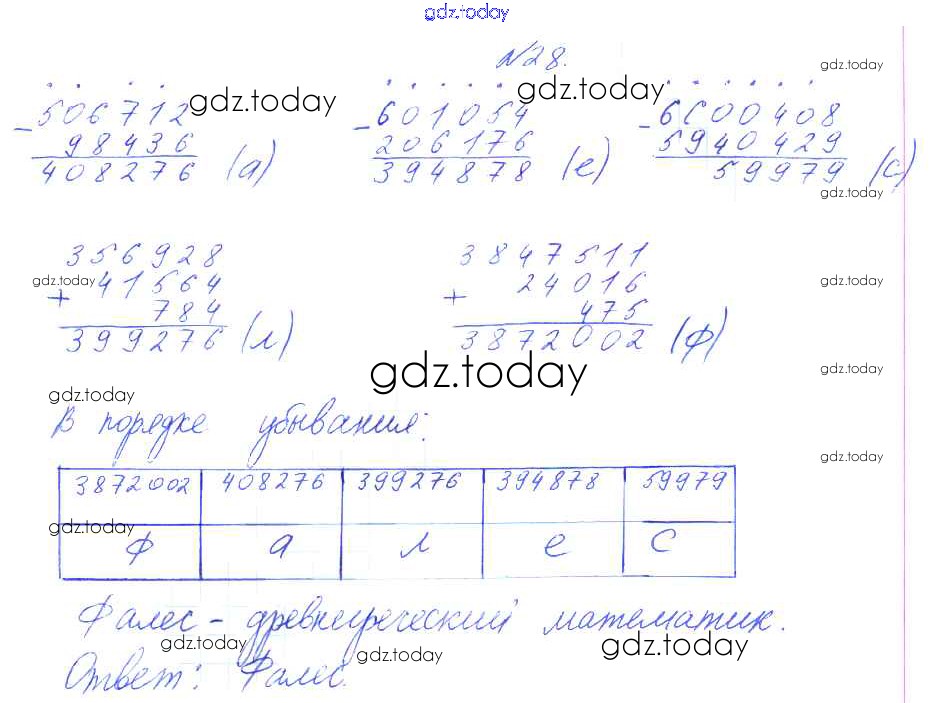 gdz.today
№28.
gdz.today
506712 gdz.today 601054 gdz.today 6000408
- 98436 - 206176 - 5940429
408276 (а) 394878 (е) 59979 (с)
gdz.today
356928 3847511
gdz.today 41564 24016 gdz.today
+ 784 + 475
399276 (л) 3872002 (ф)
gdz.today gdz.today
gdz.today
В порядке убывания:
gdz.today
3872002 408276 399276 394878 59979
gdz.today
Ф а л е с
Фалес - древнегреческий математик.
gdz.today gdz.today gdz.today
Ответ: Фалес.